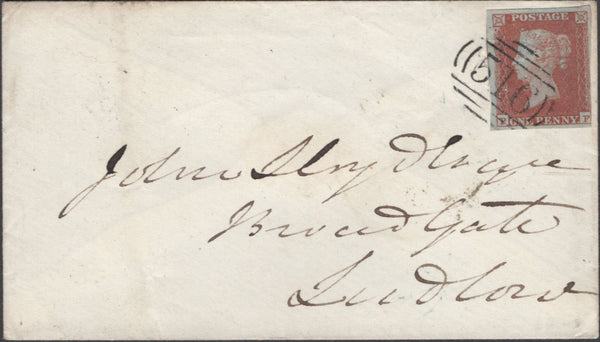 POSTAGE
516
P ONE PENNY P
John Lloyd Esqre
Broad Gate
Ludlow